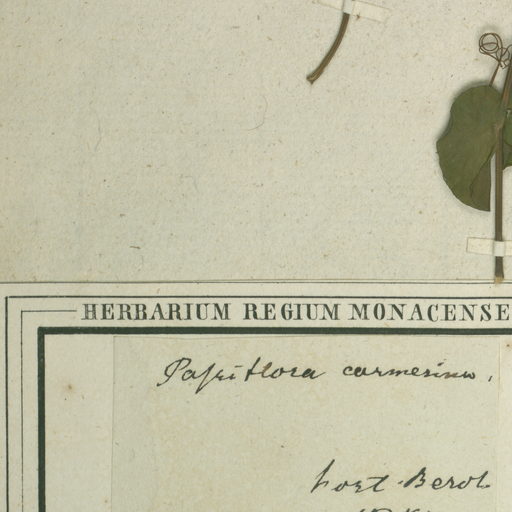 HERBARIUM REGIUM MONACENSE
Passiflora carmesina.
hort. Berol